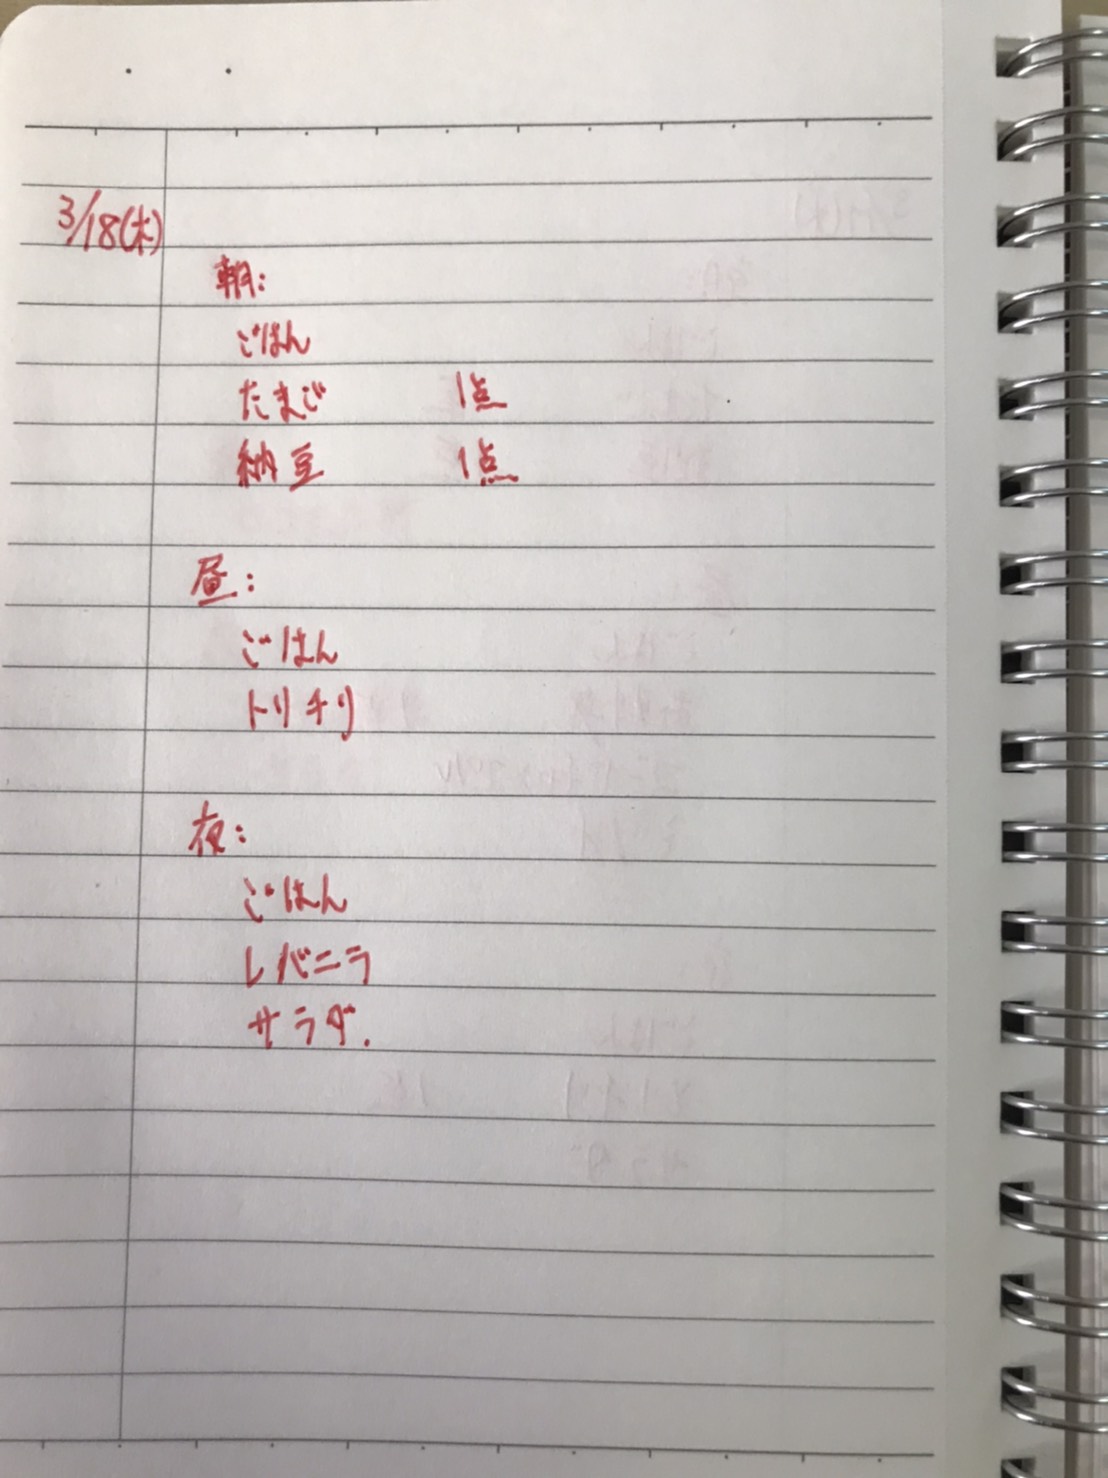 3/18(木)
朝:
ごはん
たまご 1点
納豆 1点
昼:
ごはん
トリチリ
夜:
ごはん
レバニラ
サラダ.